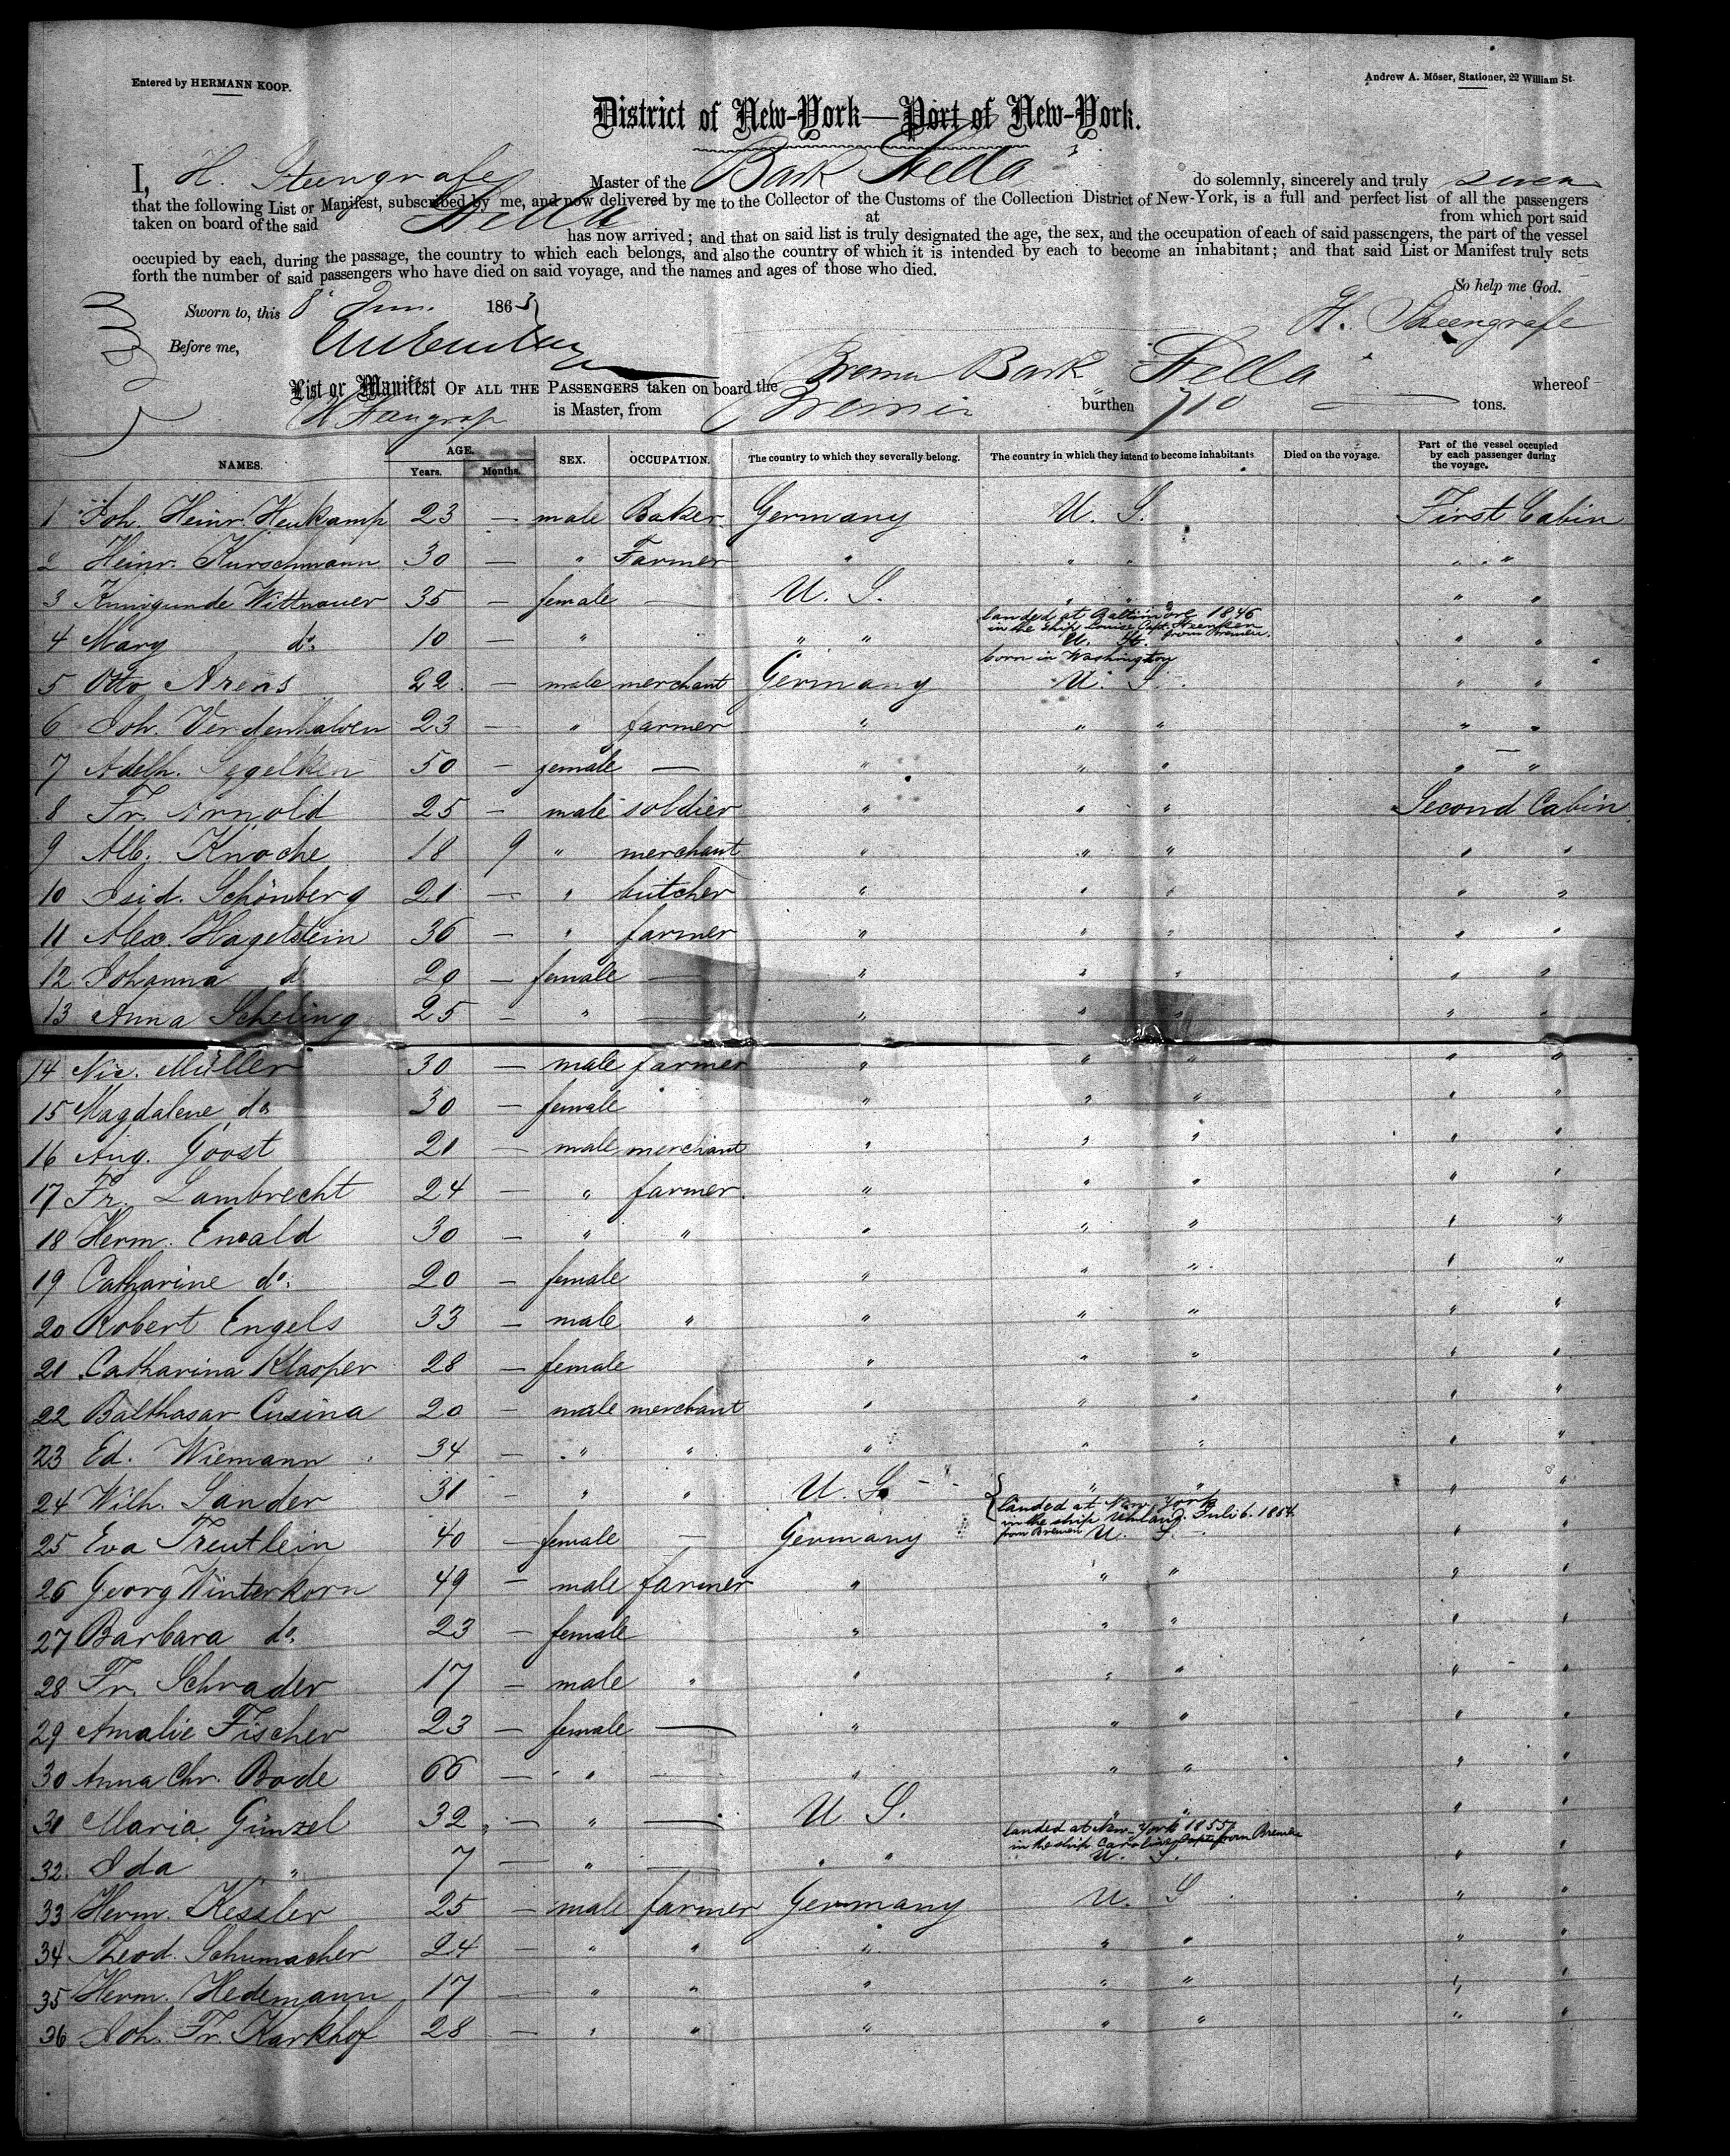 Entered by HERMANN KOOP.
Andrew A. Möser, Stationer, 22 William St.
District of New-York—Port of New-York.
I, H. Steengrafe Master of the Bark Stella do solemnly, sincerely and truly swear
that the following List or Manifest, subscribed by me, and now delivered by me to the Collector of the Customs of the Collection District of New-York, is a full and perfect list of all the passengers
taken on board of the said Stella at from which port said
has now arrived; and that on said list is truly designated the age, the sex, and the occupation of each of said passengers, the part of the vessel
occupied by each, during the passage, the country to which each belongs, and also the country of which it is intended by each to become an inhabitant; and that said List or Manifest truly sets
forth the number of said passengers who have died on said voyage, and the names and ages of those who died.
So help me God.
Sworn to, this 8 1863
H. Steengrafe
Before me,
List or Manifest OF ALL THE PASSENGERS taken on board the Bremen Bark Stella whereof
H Steengrafe is Master, from Bremen burthen 710 tons.
NAMES. AGE. Years. Months. SEX. OCCUPATION. The country to which they severally belong. The country in which they intend to become inhabitants. Died on the voyage. Part of the vessel occupied by each passenger during the voyage.
1 Joh. Heinr. Heukamp 23 — male Baker Germany U. S. First Cabin
2 Heinr. Kurschmann 30 — " Farmer " " " " "
3 Kunigunde Wittnauer 35 — female — U. S. " " " "
landed at Baltimore 1846
in the ship Louise Capt. Heenken
from Bremen.
4 Mary do. 10 — " " " U. St. " "
born in Washington
5 Otto Arens 22 — male merchant Germany U. S. " "
6 Joh. Verdenhalven 23 — " farmer " " " " "
7 Adelh. Segelken 50 — female — " " " " "
8 Fr. Arnold 25 — male soldier " " " Second Cabin
9 Alb. Knoche 18 9 " merchant " " " " "
10 Isid. Schönberg 21 — " butcher " " " " "
11 Alex. Hagelstein 36 — " farmer " " " " "
12 Johanna do 20 — female — " " " " "
13 Anna Scheling 25 — " — " " " " "
14 Nic. Müller 30 — male farmer " " " " "
15 Magdalene do 30 — female " " " " "
16 Aug. Goost 21 — male merchant " " " " "
17 Fr. Lambrecht 24 — " farmer " " " " "
18 Herm. Ewald 30 — " " " " " " "
19 Catharine do. 20 — female " " " " "
20 Robert Engels 33 — male " " " " " "
21 Catharina Klasper 28 — female " " " " "
22 Balthasar Cusina 20 — male merchant " " " " "
23 Ed. Wiemann 34 — " " " " " " "
24 Wilh. Sander 31 — " " U. S. " " " "
landed at New-York
in the ship Juli 6. 1854
from Bremen
25 Eva Treutlein 40 — female — Germany U. S. " "
26 Georg Winterkorn 49 — male farmer " " " " "
27 Barbara do. 23 — female " " " " "
28 Fr. Schrader 17 — male " " " " " "
29 Amalie Fischer 23 — female — " " " " "
30 Anna Chr. Bode 66 — " — " " " " "
31 Maria Günzel 32 — " — U. S. " " " "
landed at New-York 1855
in the ship Caroline from Bremen
32. Ida " 7 — " — " " U. S. " "
33 Herm. Kessler 25 — male farmer Germany U. S " "
34 Theod. Schumacher 24 — " " " " " " "
35 Herm. Hedemann 17 — " " " " " " "
36 Joh. Fr. Karkhof 28 — " " " " " " "